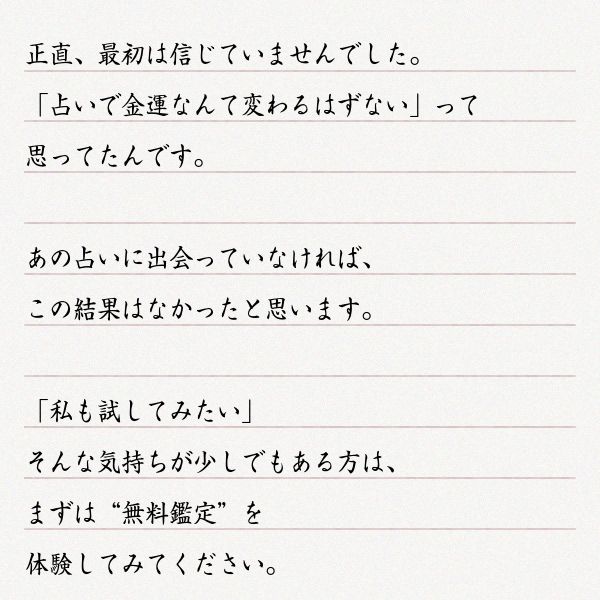 正直、最初は信じていませんでした。
「占いで金運なんて変わるはずない」って
思ってたんです。
あの占いに出会っていなければ、
この結果はなかったと思います。
「私も試してみたい」
そんな気持ちが少しでもある方は、
まずは“無料鑑定”を
体験してみてください。